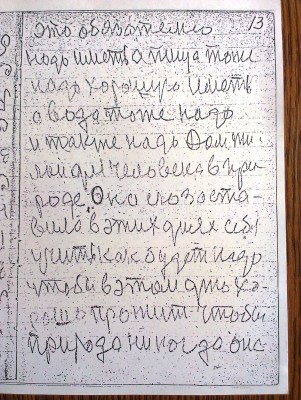 13
это обязательно
надо иметь а пища тоже
надо хорошую иметь
а вода тоже надо
и также надо Дом жи
лой для человека в при
роде. Она его заста-
вила в этих днях себя
учить как будет надо
чтобы в этом дню хо-
рошо прожит чтобы
природа никогда она